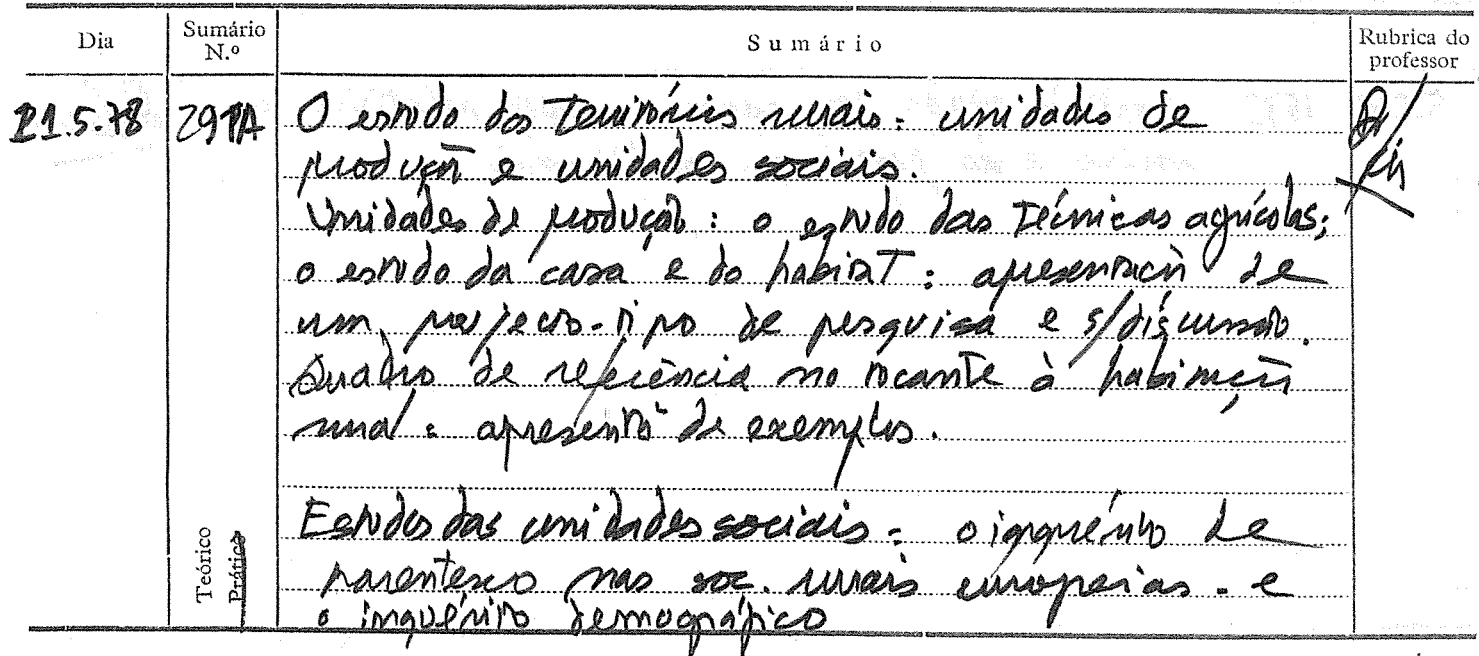 Dia
Sumário N.º
Sumário
Rubrica do professor
21.5.78
O estudo dos territórios rurais: unidades de
produção e unidades sociais.
Unidades de produção: o estudo das técnicas agrícolas;
o estudo da casa e do habitat: apresentação de
um projecto-tipo de pesquisa e s/discussão.
Quadro de referência no tocante à habitação
rural: apresentº de exemplos.
Teórico
Prático
Estudos das unidades sociais: o inquérito de
parentesco nas soc. rurais europeias - e
o inquérito demográfico